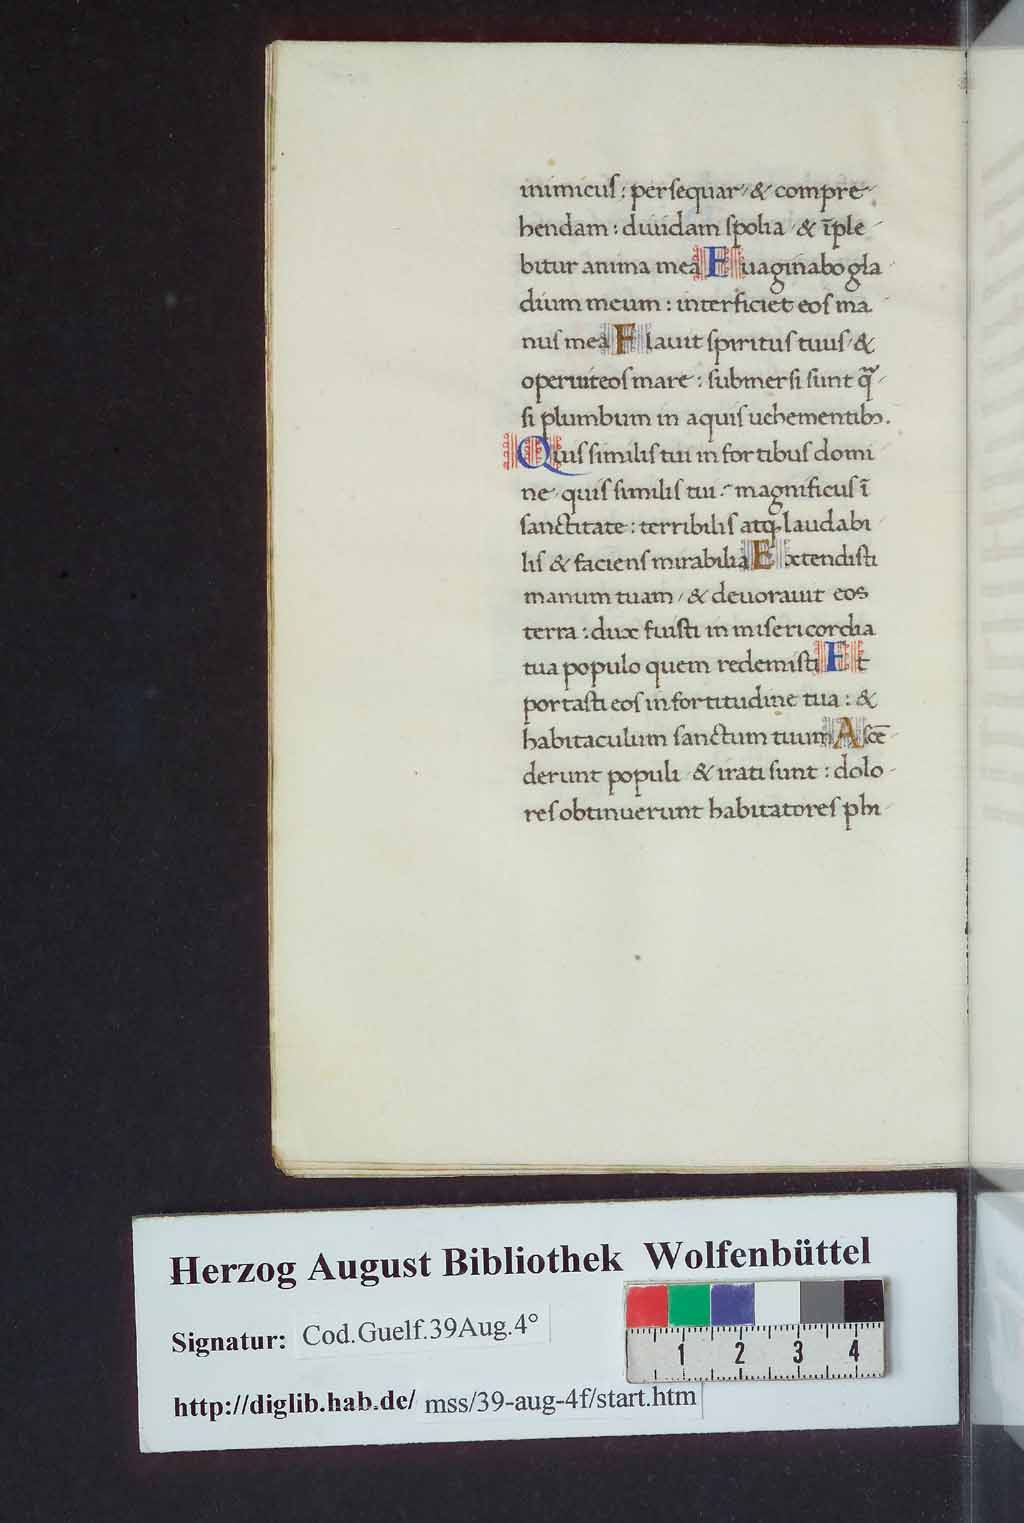 inimicuſ : perſequar / & compre-
hendam : diuidam ſpolia / & īple-
bitur anima mea Euaginabo gla-
dium meum : interficiet eoſ ma-
nuſ mea Flauit ſpirituſ tuuſ / &
operuit eoſ mare : ſubmerſi ſunt q̄ſ-
ſi plumbum in aquiſ uehementib₉.
Quiſ ſimiliſ tui in fortibuſ domi-
ne / quiſ ſimiliſ tui : magnificuſ ī
ſanctitate : terribiliſ atq; laudabi-
liſ & facienſ mirabilia Extendiſti
manum tuam / & deuorauit eos
terra : dux fuiſti in miſericordia
tua populo quem redemiſti Et
portaſti eoſ in fortitudine tua : &
habitaculum ſanctum tuum Aſcē-
derunt populi / & irati ſunt : dolo-
reſ obtinuerunt habitatoreſ phi-
Herzog August Bibliothek Wolfenbüttel
Signatur: Cod.Guelf.39Aug.4°
http://diglib.hab.de/ mss/39-aug-4f/start.htm
1 2 3 4